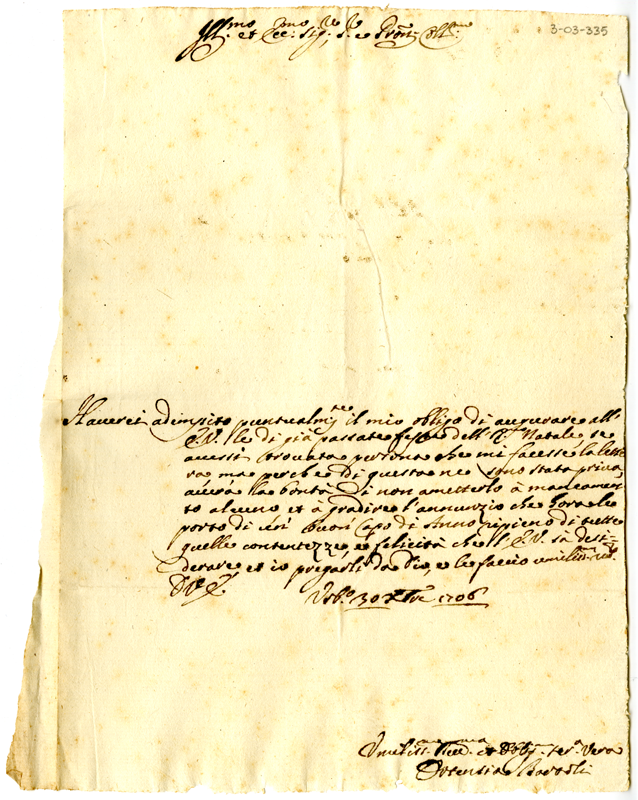 3-03-335
Ill.mo et Ecc.mo Sig.re S.re e Pron. Oss.mo
Haverei adempito puntualm.te il mio obligo di augurare all'
E.V. le di già passate feste dell S. Natale, se
avessi trovata persona che mi facesse la lette
ra ma perche di questa ne sono stata priva
averà la bontà di non ametterlo à mancamen
to alcuno et à gradire l'annunzio che hora le
porto di un buon Capo di Anno ripieno di tutte
quelle contentezze, e felicità che l'E.V. sà desi
derare et io pregarli da Dio, e le faccio umiliss.ma riv.
D. V. E.
Urb.o 30 Xbre 1706
Umiliss.ma et Obblig. Ser.a Vera
Ortensia Bartoli